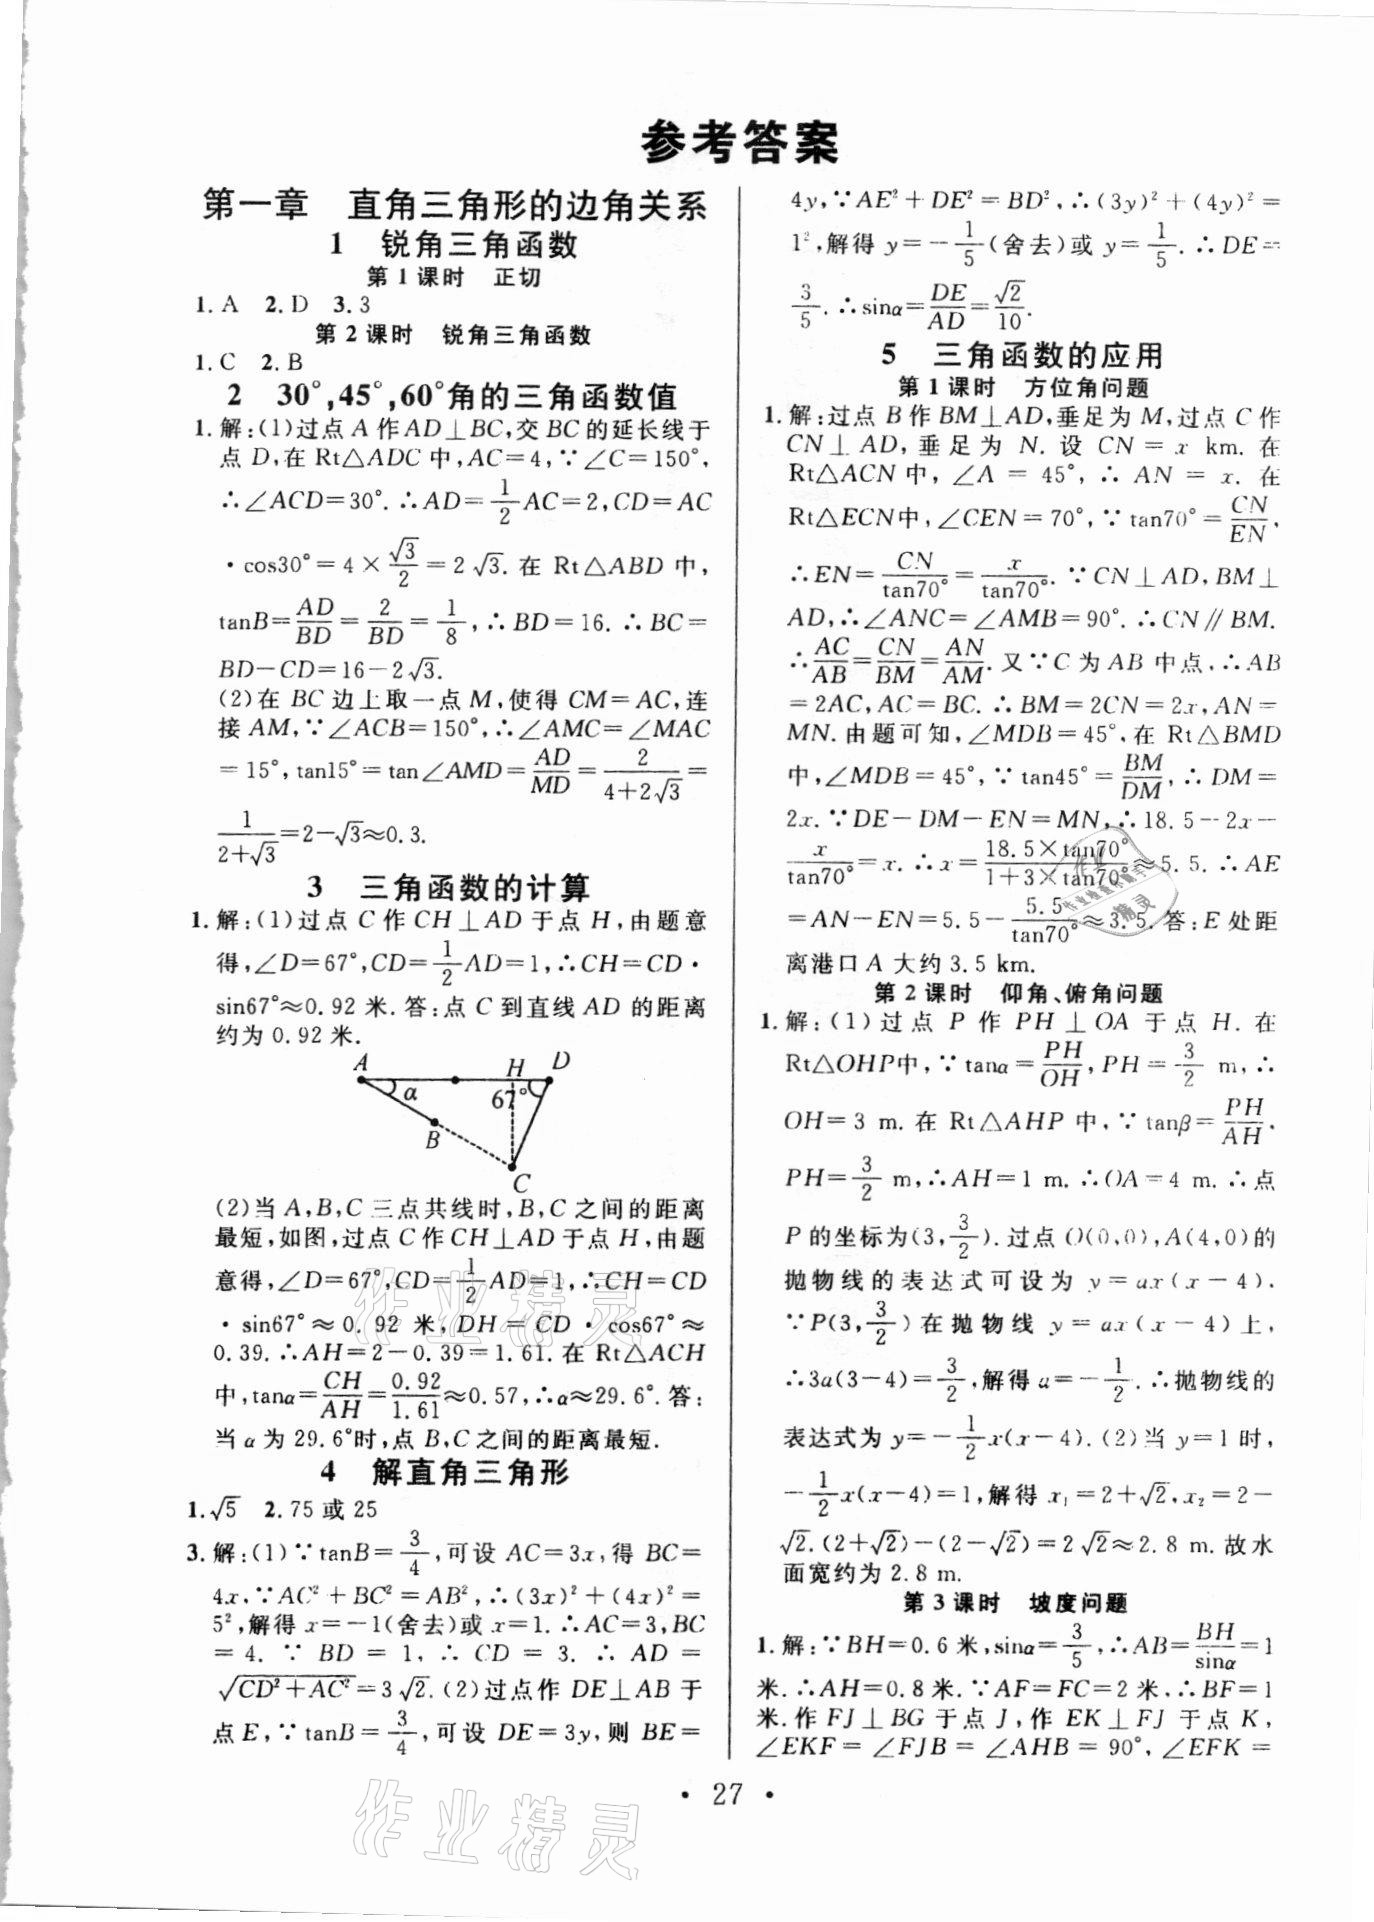 参考答案
第一章　直角三角形的边角关系
1　锐角三角函数
第1课时　正切
1. A　2. D　3. 3
第2课时　锐角三角函数
1. C　2. B
2　30°,45°,60°角的三角函数值
1. 解:(1)过点A作AD⊥BC,交BC的延长线于
点D,在Rt△ADC中,AC=4,∵∠C=150°,
∴∠ACD=30°.∴AD=1/2AC=2,CD=AC
·cos30°=4×√3/2=2√3.在Rt△ABD中,
tanB=AD/BD=2/BD=1/8,∴BD=16.∴BC=
BD-CD=16-2√3.
(2)在BC边上取一点M,使得CM=AC,连
接AM,∵∠ACB=150°,∴∠AMC=∠MAC
=15°,tan15°=tan∠AMD=AD/MD=2/(4+2√3)=
1/(2+√3)=2-√3≈0.3.
3　三角函数的计算
1. 解:(1)过点C作CH⊥AD于点H,由题意
得,∠D=67°,CD=1/2AD=1,∴CH=CD·
sin67°≈0.92米.答:点C到直线AD的距离
约为0.92米.
A H D
α 67°
B
C
(2)当A,B,C三点共线时,B,C之间的距离
最短,如图,过点C作CH⊥AD于点H,由题
意得,∠D=67°,CD=1/2AD=1,∴CH=CD
·sin67°≈0.92米,DH=CD·cos67°≈
0.39.∴AH=2-0.39=1.61.在Rt△ACH
中,tanα=CH/AH=0.92/1.61≈0.57,∴α≈29.6°.答:
当α为29.6°时,点B,C之间的距离最短.
4　解直角三角形
1. √5　2. 75或25
3. 解:(1)∵tanB=3/4,可设AC=3x,得BC=
4x,∵AC²+BC²=AB²,∴(3x)²+(4x)²=
5²,解得x=-1(舍去)或x=1.∴AC=3,BC
=4.∵BD=1,∴CD=3.∴AD=
√(CD²+AC²)=3√2.(2)过点作DE⊥AB于
点E,∵tanB=3/4,可设DE=3y,则BE=
4y,∵AE²+DE²=BD²,∴(3y)²+(4y)²=
1²,解得y=-1/5(舍去)或y=1/5.∴DE=
3/5.∴sinα=DE/AD=√2/10.
5　三角函数的应用
第1课时　方位角问题
1. 解:过点B作BM⊥AD,垂足为M,过点C作
CN⊥AD,垂足为N.设CN=x km.在
Rt△ACN中,∠A=45°,∴AN=x.在
Rt△ECN中,∠CEN=70°,∵tan70°=CN/EN,
∴EN=CN/tan70°=x/tan70°.∵CN⊥AD,BM⊥
AD,∴∠ANC=∠AMB=90°.∴CN∥BM.
∴AC/AB=CN/BM=AN/AM.又∵C为AB中点,∴AB
=2AC,AC=BC.∴BM=2CN=2x,AN=
MN.由题可知,∠MDB=45°,在Rt△BMD
中,∠MDB=45°,∵tan45°=BM/DM,∴DM=
2x.∵DE-DM-EN=MN,∴18.5-2x-
x/tan70°=x.∴x=18.5×tan70°/(1+3×tan70°)≈5.5.∴AE
=AN-EN=5.5-5.5/tan70°≈3.5.答:E处距
离港口A大约3.5 km.
第2课时　仰角、俯角问题
1. 解:(1)过点P作PH⊥OA于点H.在
Rt△OHP中,∵tanα=PH/OH,PH=3/2 m,∴
OH=3 m.在Rt△AHP中,∵tanβ=PH/AH.
PH=3/2 m,∴AH=1 m.∴OA=4 m.∴点
P的坐标为(3,3/2).过点O(0,0),A(4,0)的
抛物线的表达式可设为y=ax(x-4).
∵P(3,3/2)在抛物线y=ax(x-4)上,
∴3a(3-4)=3/2,解得a=-1/2.∴抛物线的
表达式为y=-1/2x(x-4).(2)当y=1时,
-1/2x(x-4)=1,解得x₁=2+√2,x₂=2-
√2.(2+√2)-(2-√2)=2√2≈2.8 m.故水
面宽约为2.8 m.
第3课时　坡度问题
1. 解:∵BH=0.6米,sinα=3/5,∴AB=BH/sinα=1
米.∴AH=0.8米.∵AF=FC=2米,∴BF=1
米.作FJ⊥BG于点J,作EK⊥FJ于点K,
∠EKF=∠FJB=∠AHB=90°,∠EFK=
·27·
作业精灵
作业精灵